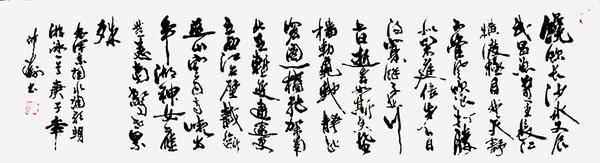 饮长沙水又食
武昌鱼万里长江
横渡极目楚天舒
不管风吹浪打胜
似闲庭信步今日
得宽馀子在川
上曰逝者如斯夫风
樯动龟蛇静起
宏图一桥飞架南
北天堑变通途更
立西江石壁截断
巫山云雨高峡出
平湖神女应
无恙当惊世界
殊
毛泽东词水调歌头
游泳一首庚子年
书